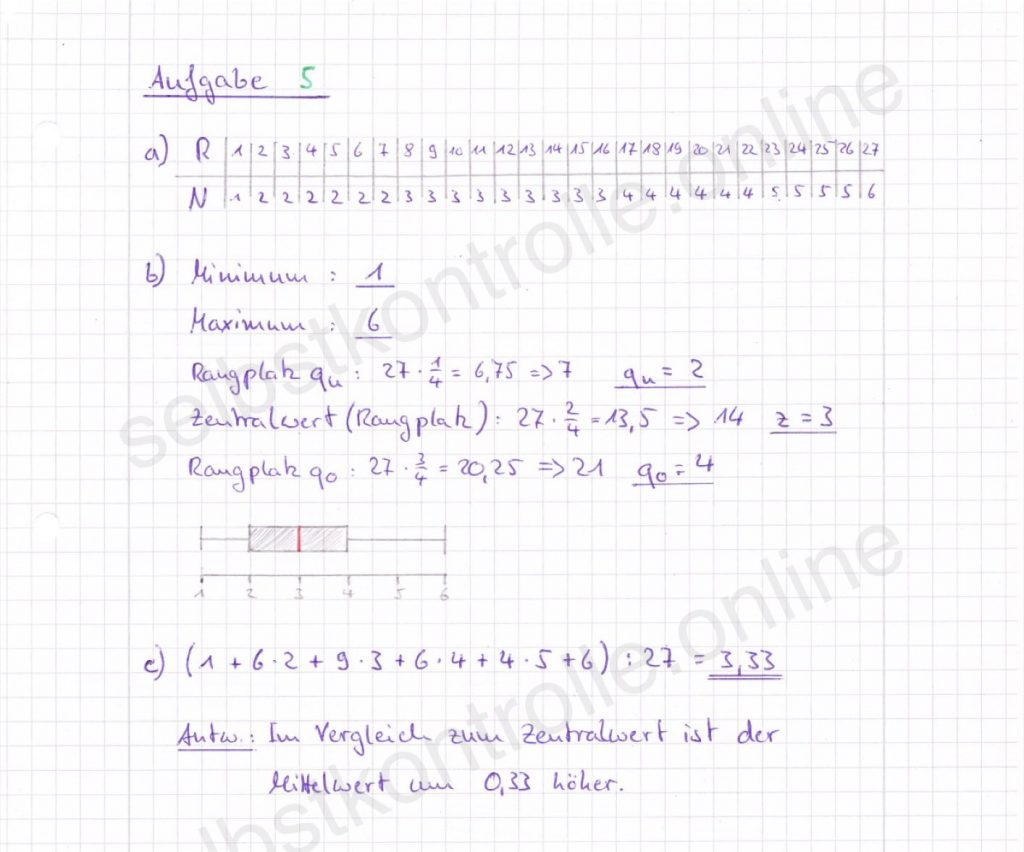 Aufgabe 5
a) R 1 2 3 4 5 6 7 8 9 10 11 12 13 14 15 16 17 18 19 20 21 22 23 24 25 26 27
N 1 2 2 2 2 2 2 3 3 3 3 3 3 3 3 3 4 4 4 4 4 4 5 5 5 5 6
b) Minimum : 1
Maximum : 6
Rangplatz qu : 27 · 1/4 = 6,75 => 7 qu = 2
Zentralwert (Rangplatz) : 27 · 2/4 = 13,5 => 14 z = 3
Rangplatz qo : 27 · 3/4 = 20,25 => 21 qo = 4
1 2 3 4 5 6
c) (1 + 6 · 2 + 9 · 3 + 6 · 4 + 4 · 5 + 6) : 27 = 3,33
Antw.: Im Vergleich zum Zentralwert ist der
Mittelwert um 0,33 höher.
selbstkontrolle.online
selbstkontrolle.online